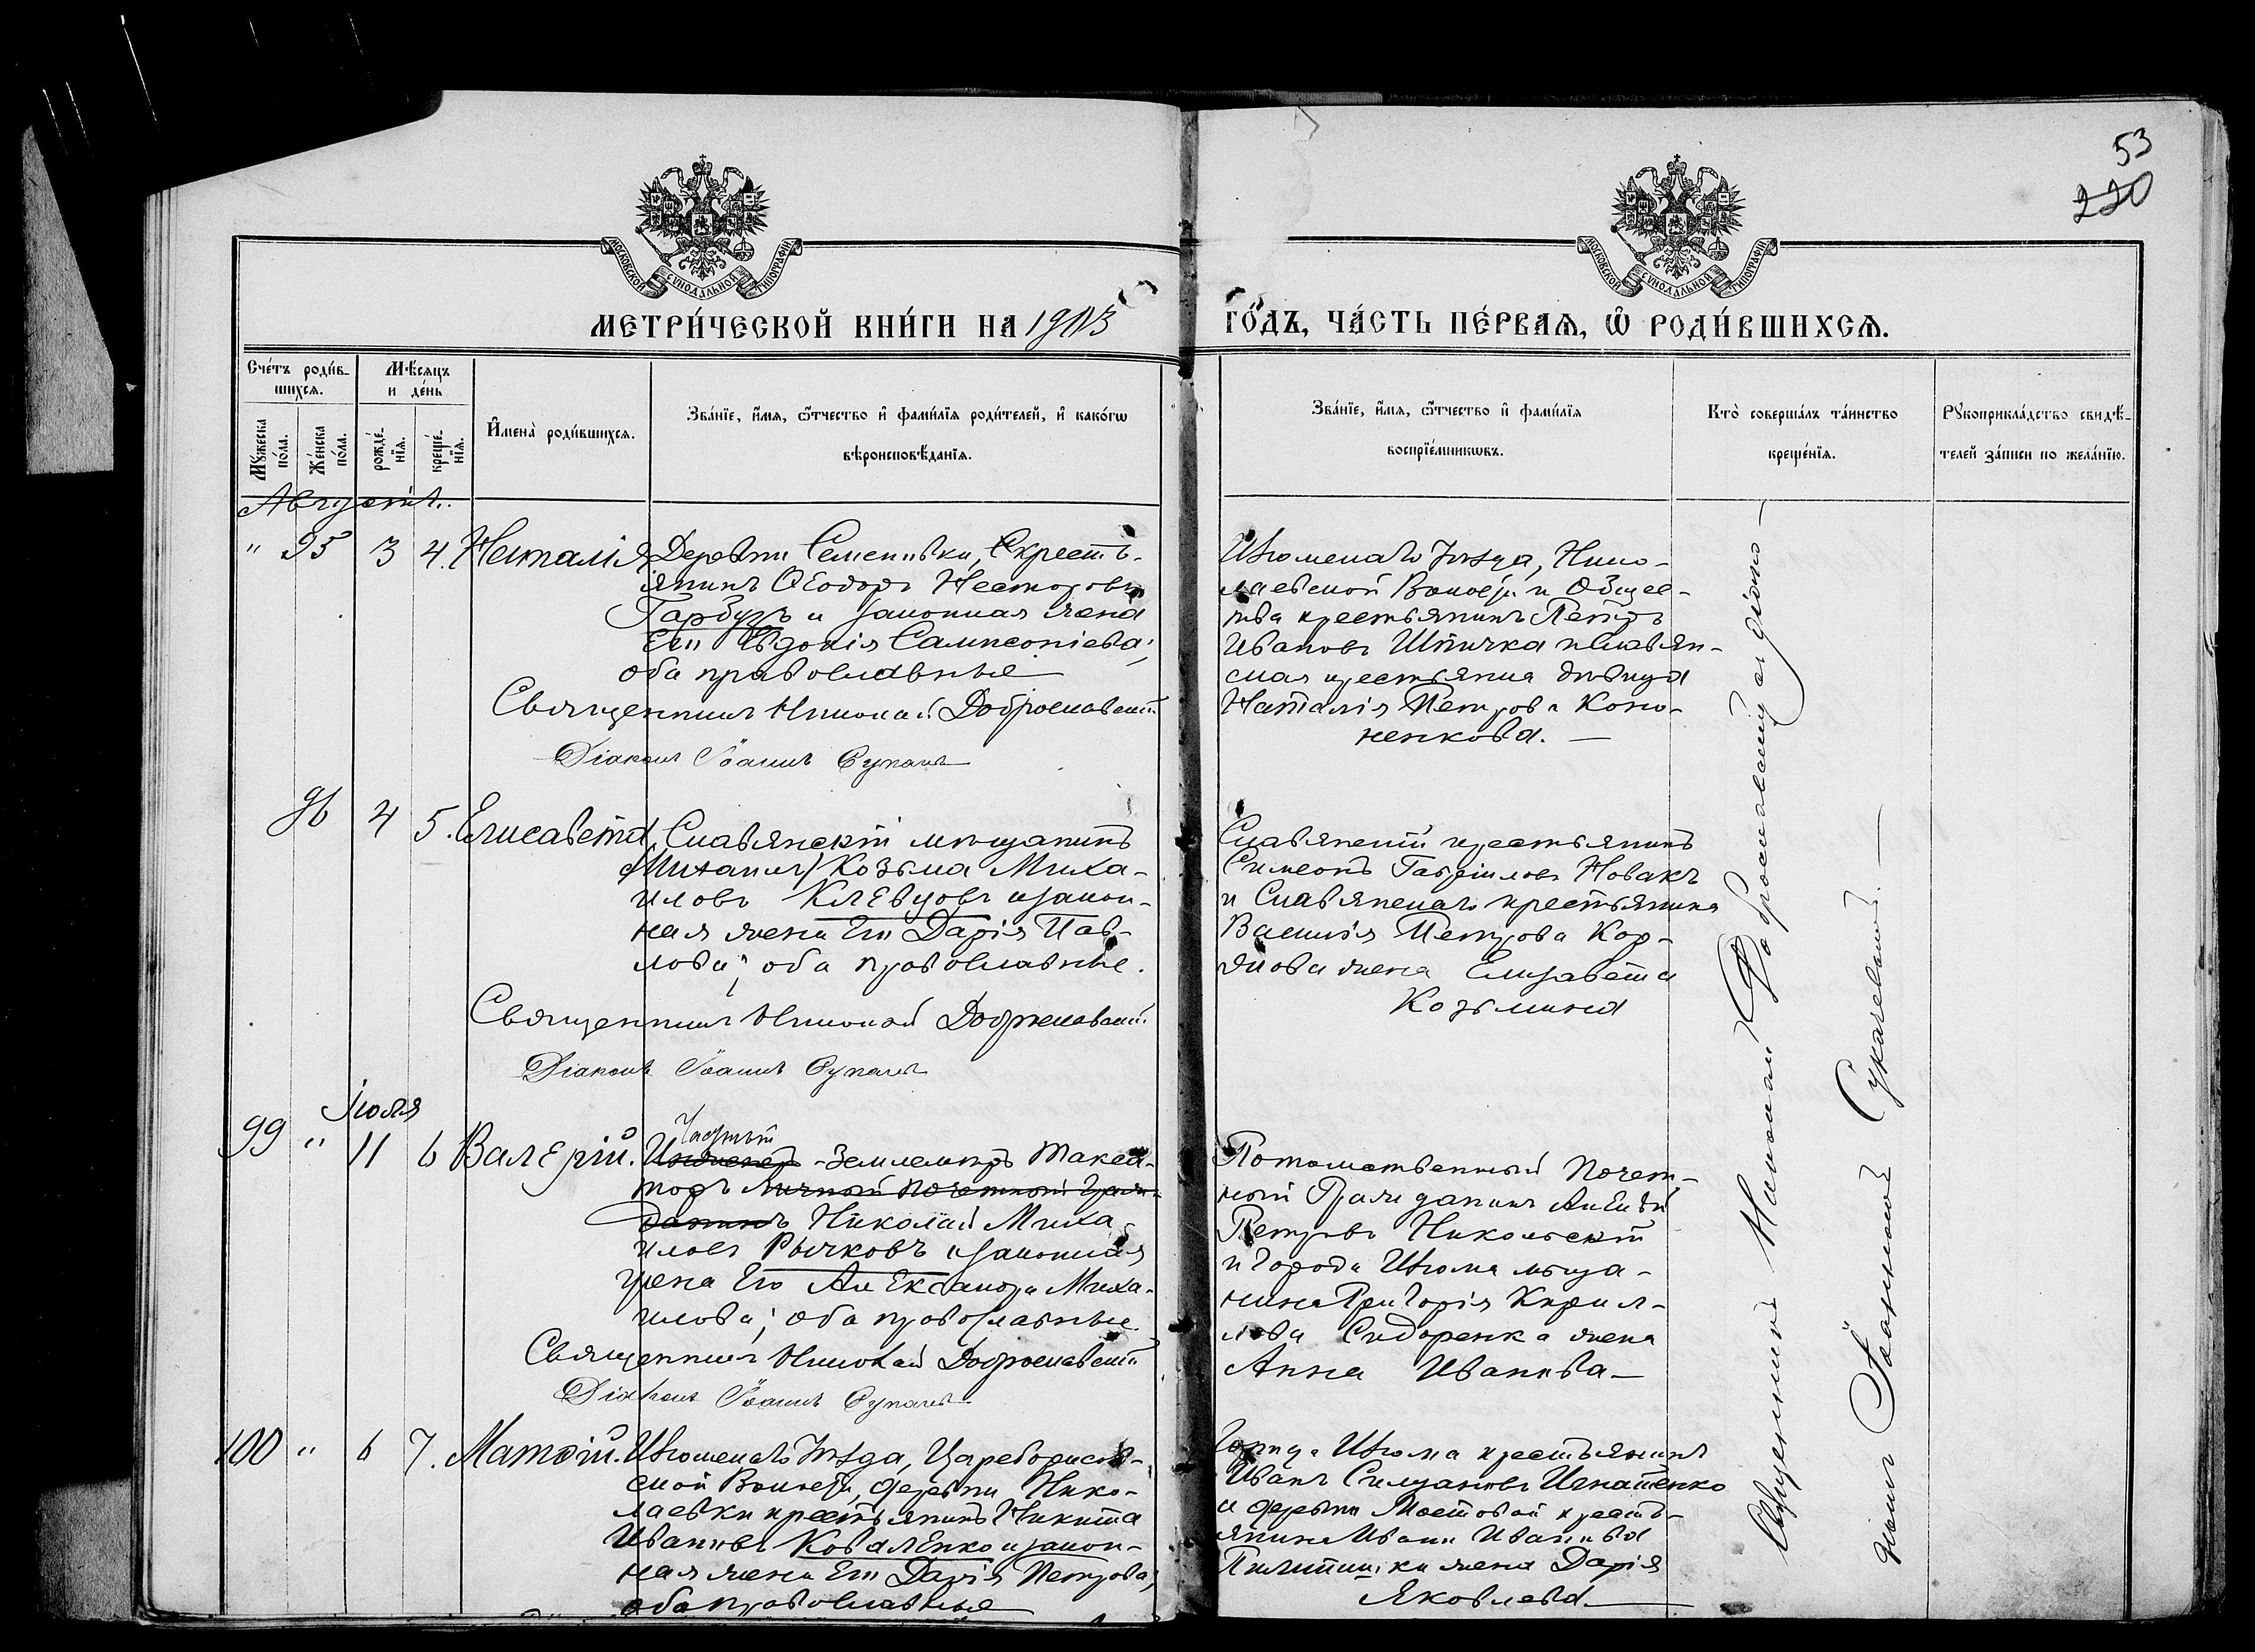 53
220
МОСКОВСКОЙ СѴНОДАЛЬНОЙ ТИПОГРАФІИ
МОСКОВСКОЙ СѴНОДАЛЬНОЙ ТИПОГРАФІИ
МЕТРИ́ЧЕСКОЙ КНИ́ГИ НА 1913
ГО́ДЪ, ЧА́СТЬ ПЕ́РВАѦ, Ѡ҆ РОДИ́ВШИХСѦ.
Сче́тъ роди́в-
шихсѧ.
Мѣ́сѧцъ
и де́нь
Мꙋ́жеска
по́ла.
Же́нска
по́ла.
рожде́-
нїѧ.
креще́-
нїѧ.
И҆мена̀ роди́вшихсѧ.
Зва́нїе, и҆́мѧ, ѻ҆́тчество и҆ фами́лїѧ роди́телей, и҆ како́гѡ
вѣроисповѣ́данїѧ.
Зва́нїе, и҆́мѧ, ѻ҆́тчество и҆ фами́лїѧ
воспрїе́мникѡвъ.
Кто̀ соверша́лъ та́инство
креще́нїѧ.
Рꙋкоприкла́дство свидѣ́-
телей за́писи по жела́нїю.
Августъ.
" 95 3 4. Наталія
Деревни Семеновки, крестъ-
янинъ Ѳеодоръ Несторовъ
Гарбузъ и законная жена
Его Евдокія Сампсоніева;
оба православные
Священникъ Николай Доброславскій
Діаконъ Іоаннъ
Изюмскаго уѣзда, Нико-
лаевской Волости и Общес-
тва крестьянинъ Петръ
Ивановъ Шпичка и Славян-
ская крестьянка дѣвица
Наталія Петрова Коно-
ненкова. —
96 4 5. Елисавета
Славянскій мѣщанинъ
(Михаилъ) Козьма Миха-
иловъ Клевцовъ и закон-
ная жена Его Дарія Пав-
лова; оба православные.
Священникъ Николай Доброславскій
Діаконъ Іоаннъ
Славянскій крестьянинъ
Симеонъ Гавріиловъ Новакъ
и Славянскаго крестьянина
Василія Петрова Кор-
жена Елизавета
Козьмина
Іюля
99 " 11 6 Валерій.
Частный
Инженеръ - Землемѣръ Такса-
торъ Личный Почетный Граж-
данинъ Николай Миха-
иловъ Рычковъ и законная
жена Его Александра Миха-
илова; оба православные
Священникъ Николай Доброславскій
Діаконъ Іоаннъ
Потомственный Почет-
ный Гражданинъ Алексѣй
Петровъ Никольскій
и Города Изюма мѣща-
нина Григорія Кирил-
лова Сидоренка жена
Анна Иванова —
100 " 6 7. Матѳій.
Изюмскаго уѣзда, Цареборисов-
ской Волости, деревни Нико-
лаевки крестьянинъ Никита
Ивановъ Коваленко и закон-
ная жена Его Дарія Петрова;
оба православные
Города Изюма крестьянинъ
Иванъ Игнатенко
и деревни Мостовой кресть-
янина Ивана Иванова
жена Дарія
Яковлева —
Священникъ Николай Доброславскій съ діако-
номъ Іоанномъ